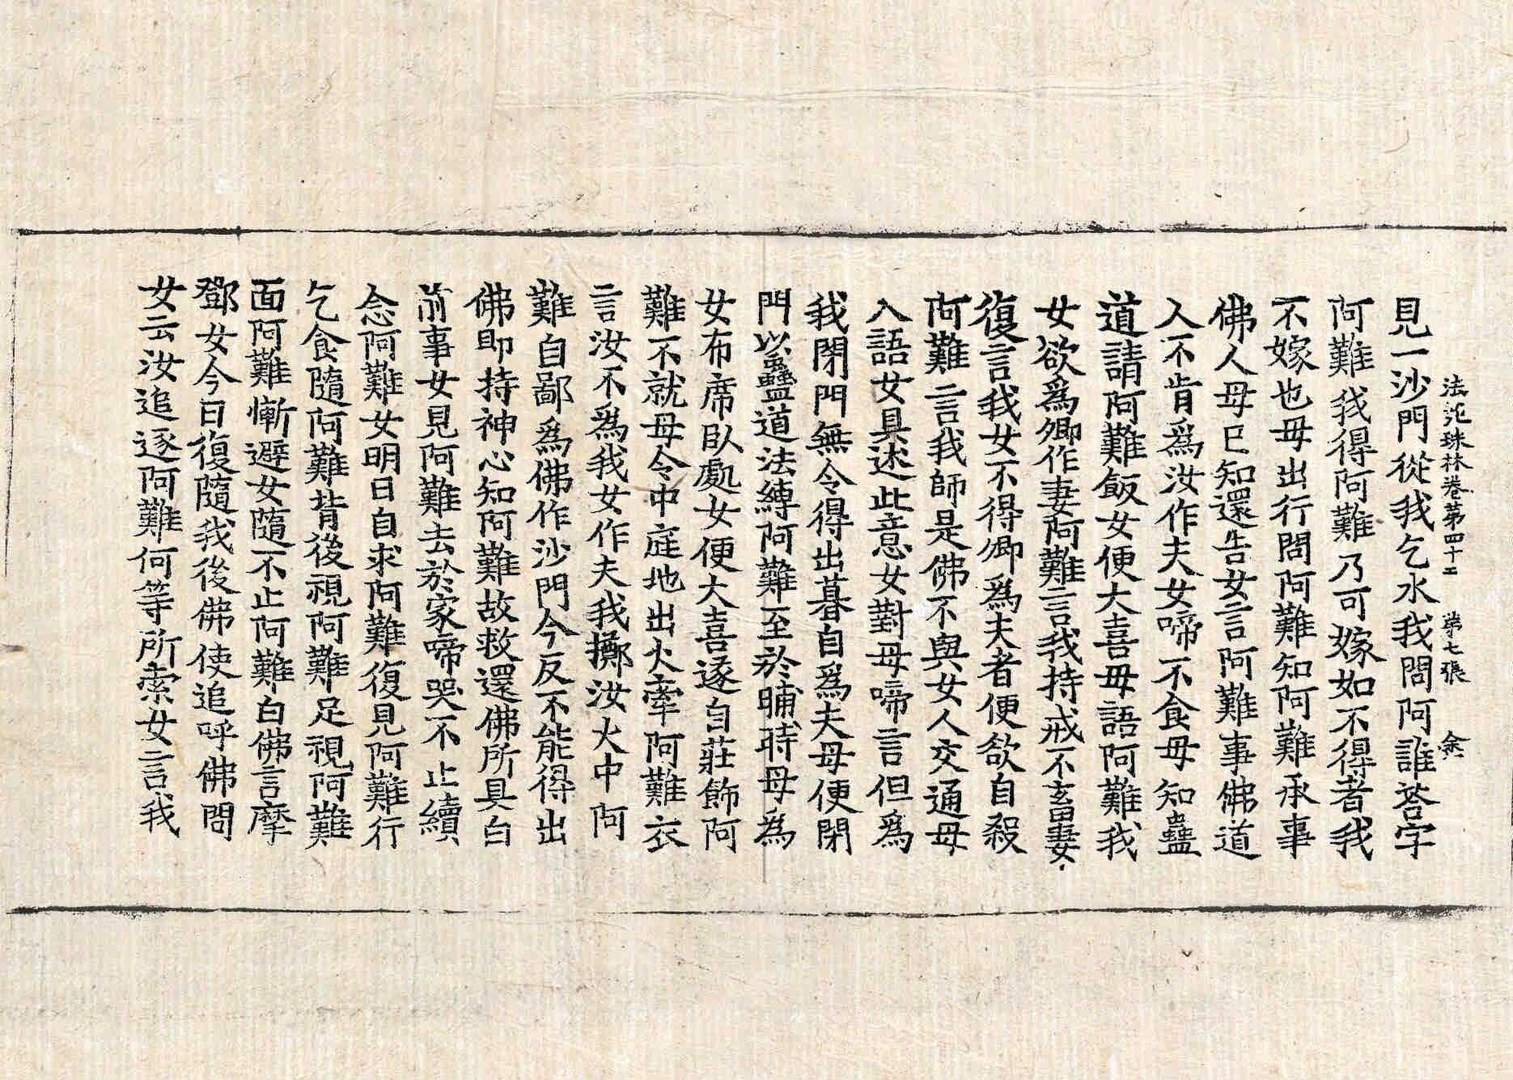 法苑珠林卷第四十二　第七張
見一沙門從我乞水我問阿誰荅字
阿難我得阿難乃可嫁如不得者我
不嫁也母出行問阿難知阿難承事
佛人母已知還告女言阿難事佛道
人不肯爲汝作夫女啼不食母知蠱
道請阿難飯女便大喜母語阿難我
女欲爲卿作妻阿難言我持戒不畜妻
復言我女不得卿爲夫者便欲自殺
阿難言我師是佛不與女人交通母
入語女具述此意女對母啼言但爲
我閉門無令得出暮自爲夫母便閉
門以蠱道法縛阿難至於晡時母爲
女布席臥處女便大喜逐自莊飾阿
難不就母令中庭地出火牽阿難衣
言汝不爲我女作夫我擲汝火中阿
難自鄙爲佛作沙門今反不能得出
佛即持神心知阿難故救還佛所具白
前事女見阿難去於家啼哭不止續
念阿難女明日自求阿難復見阿難行
乞食隨阿難背後視阿難足視阿難
面阿難慚避女隨不止阿難白佛言摩
鄧女今日復隨我後佛使追呼佛問
女云汝追逐阿難何等所索女言我